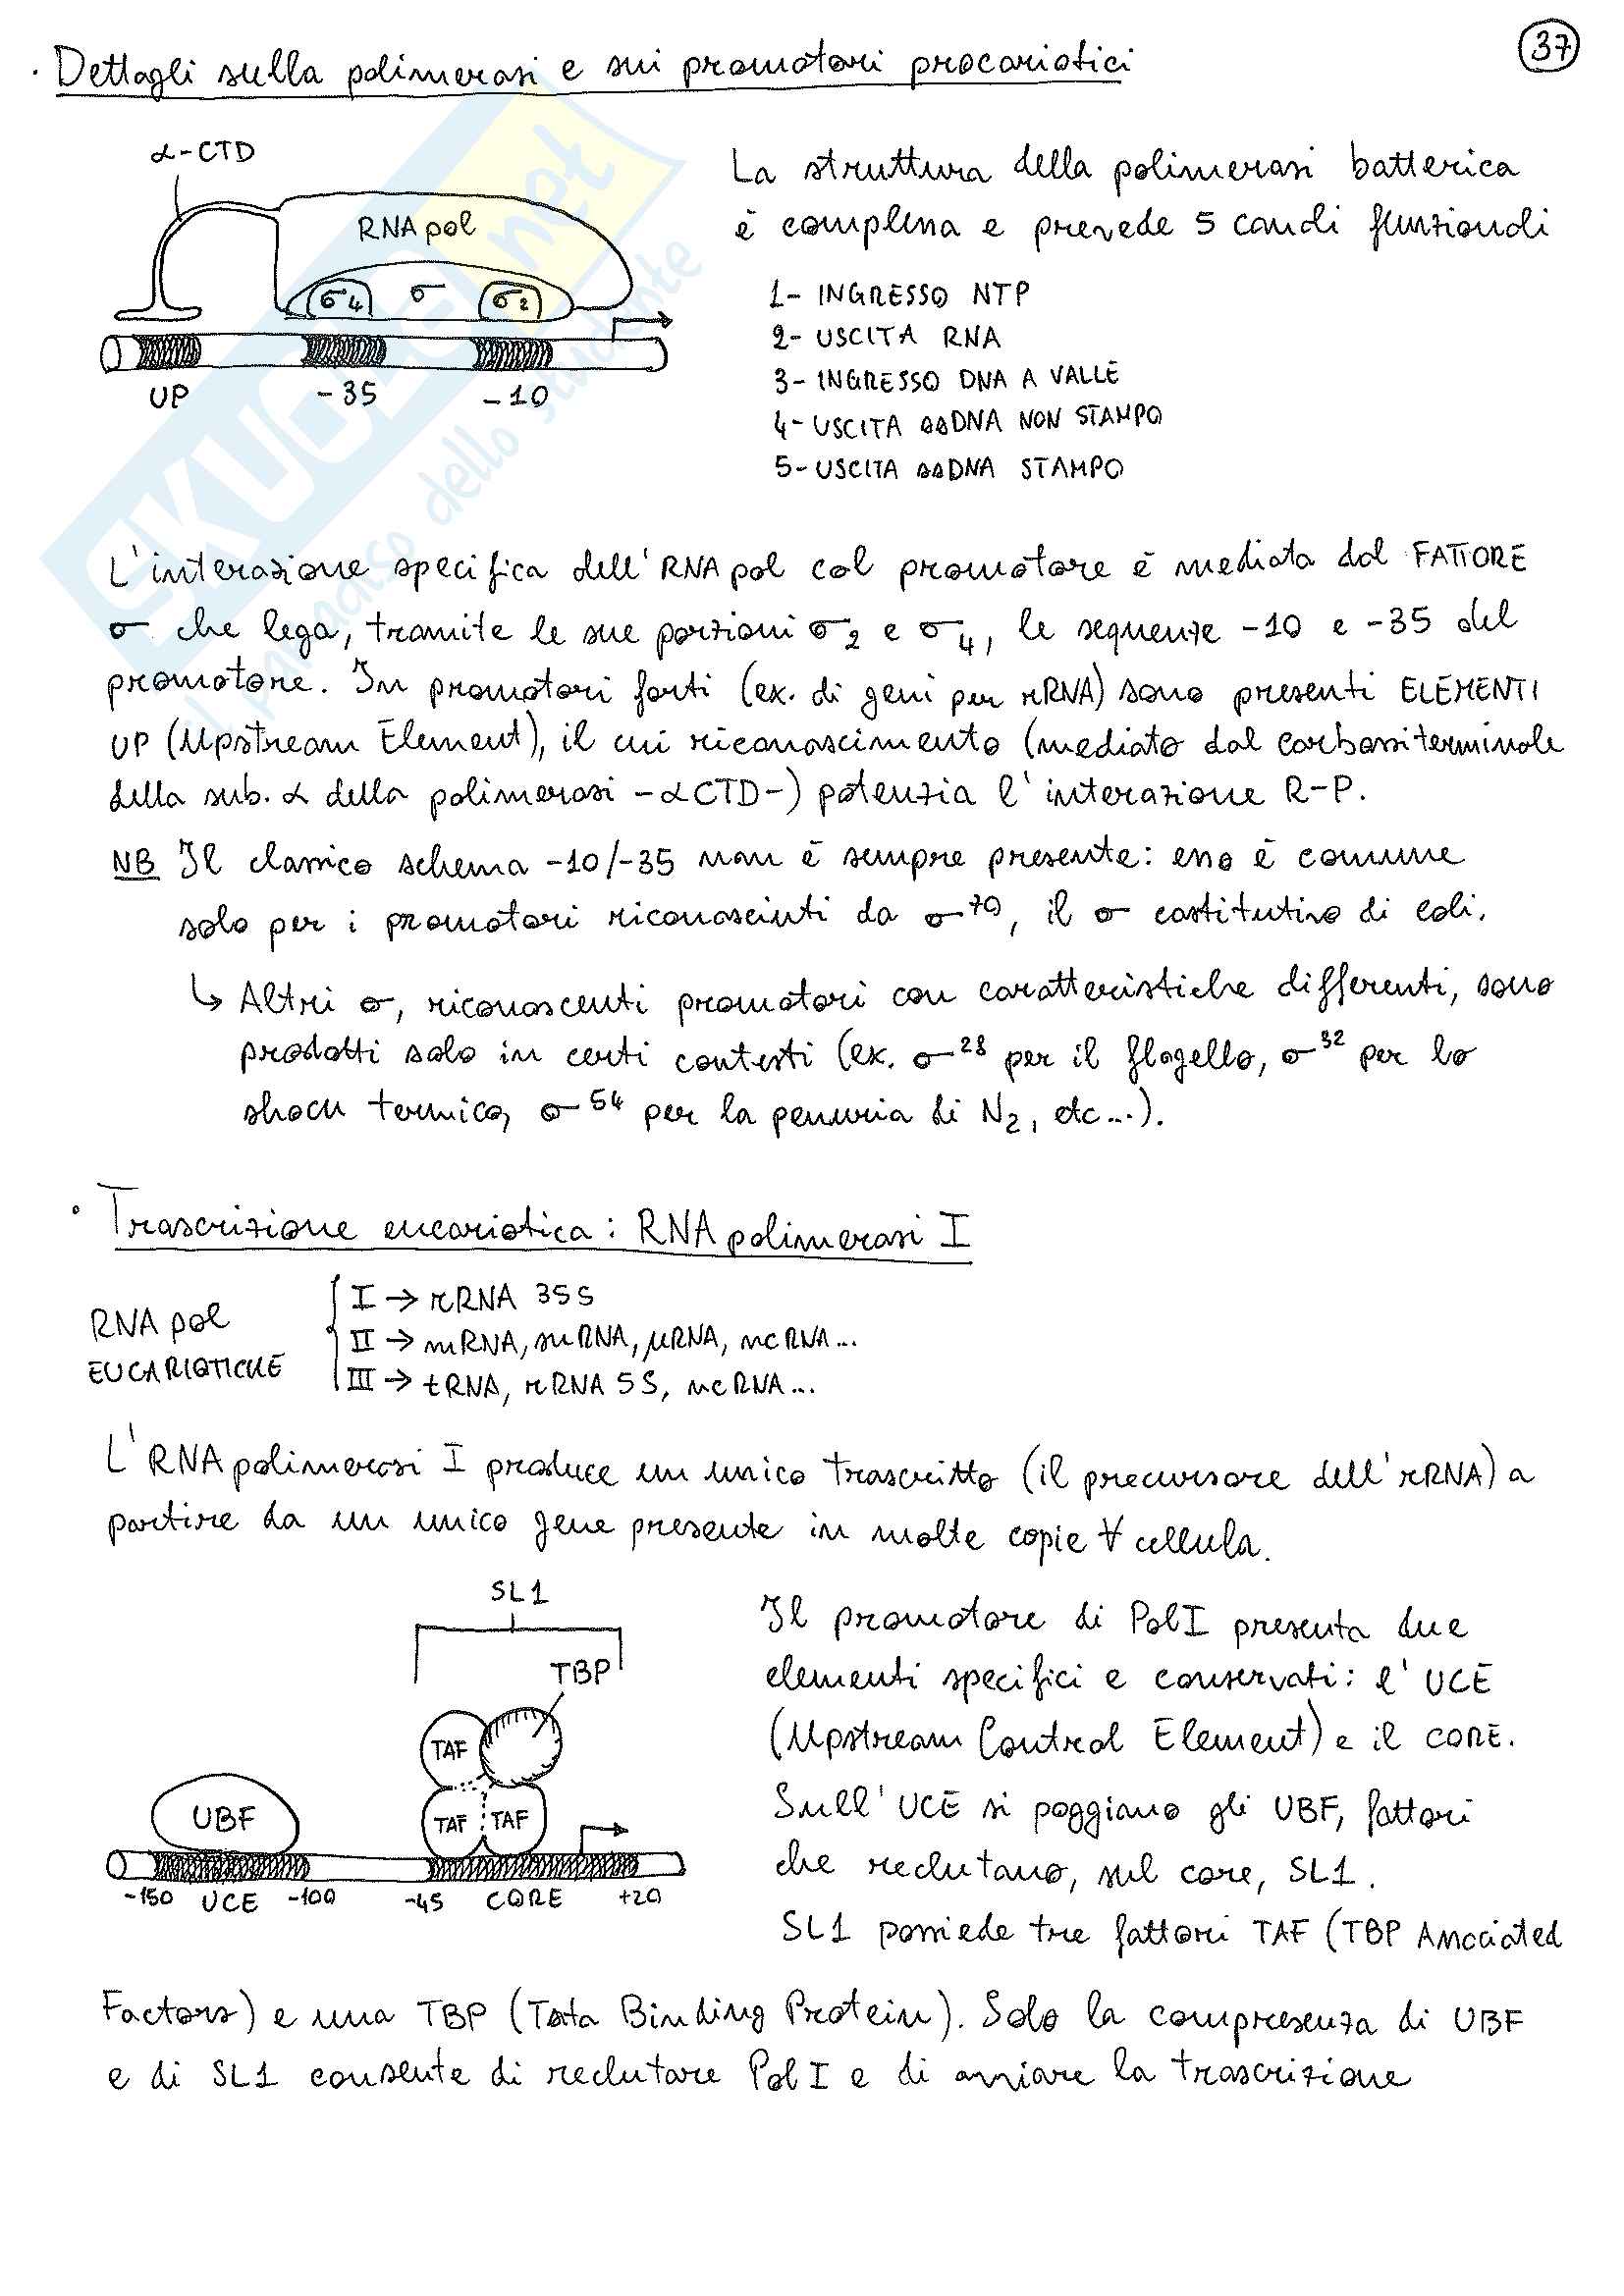 37
· Dettagli sulla polimerasi e sui promotori procariotici
α-CTD
RNA pol
σ4 σ σ2
UP -35 -10
La struttura della polimerasi batterica
è complessa e prevede 5 canali funzionali
1- INGRESSO NTP
2- USCITA RNA
3- INGRESSO DNA A VALLE
4- USCITA ssDNA NON STAMPO
5- USCITA ssDNA STAMPO
L'interazione specifica dell'RNA pol col promotore è mediata dal FATTORE
σ che lega, tramite le sue porzioni σ2 e σ4, le sequenze -10 e -35 del
promotore. In promotori forti (ex. di geni per rRNA) sono presenti ELEMENTI
UP (Upstream Element), il cui riconoscimento (mediato dal carbossiterminale
della sub. α della polimerasi -αCTD-) potenzia l'interazione R-P.
NB Il classico schema -10/-35 non è sempre presente: esso è comune
solo per i promotori riconosciuti da σ⁷⁰, il σ costitutivo di coli.
↳ Altri σ, riconoscenti promotori con caratteristiche differenti, sono
prodotti solo in certi contesti (ex. σ²⁸ per il flagello, σ³² per lo
shock termico, σ⁵⁴ per la penuria di N2, etc...).
· Trascrizione eucariotica: RNA polimerasi I
RNA pol
EUCARIOTICHE
I → rRNA 35S
II → mRNA, snRNA, μRNA, ncRNA...
III → tRNA, rRNA 5S, ncRNA...
L'RNA polimerasi I produce un unico trascritto (il precursore dell'rRNA) a
partire da un unico gene presente in molte copie ∀ cellula.
SL1
TBP
TAF
UBF
TAF TAF
-150 UCE -100 -45 CORE +20
Il promotore di Pol I presenta due
elementi specifici e conservati: l'UCE
(Upstream Control Element) e il CORE.
Sull'UCE si poggiano gli UBF, fattori
che reclutano, sul core, SL1.
SL1 possiede tre fattori TAF (TBP Associated
Factors) e una TBP (Tata Binding Protein). Solo la compresenza di UBF
e di SL1 consente di reclutare Pol I e di avviare la trascrizione
SKUOLA.net
il paradiso dello studente